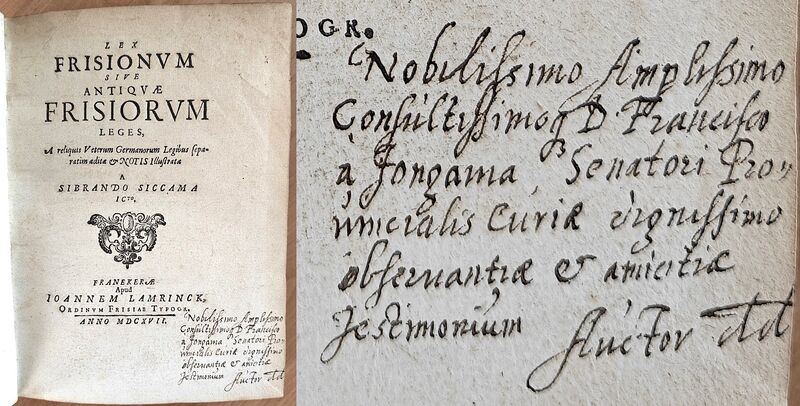 LEX
FRISIONVM
SIVE
ANTIQVÆ
FRISIORVM
LEGES,
A reliquis Veterum Germanorum Legibus sepa-
ratim æditæ & NOTIS illustratæ
A
SIBRANDO SICCAMA
ICto.
FRANEKERÆ
Apud
IOANNEM LAMRINCK,
ORDINVM FRISIAE TYPOGR.
ANNO MDCXVII.
Nobilissimo Amplissimo
Consultissimoq D. Francisco
a Jongama Senatori Pro
vincialis Curiæ dignissimo
observantiæ & amicitiæ
Testimonium
Auctor dd
OGR.
Nobilissimo Amplissimo
Consultissimoq D. Francisco
a Jongama Senatori Pro
vincialis Curiæ dignissimo
observantiæ & amicitiæ
Testimonium
Auctor dd